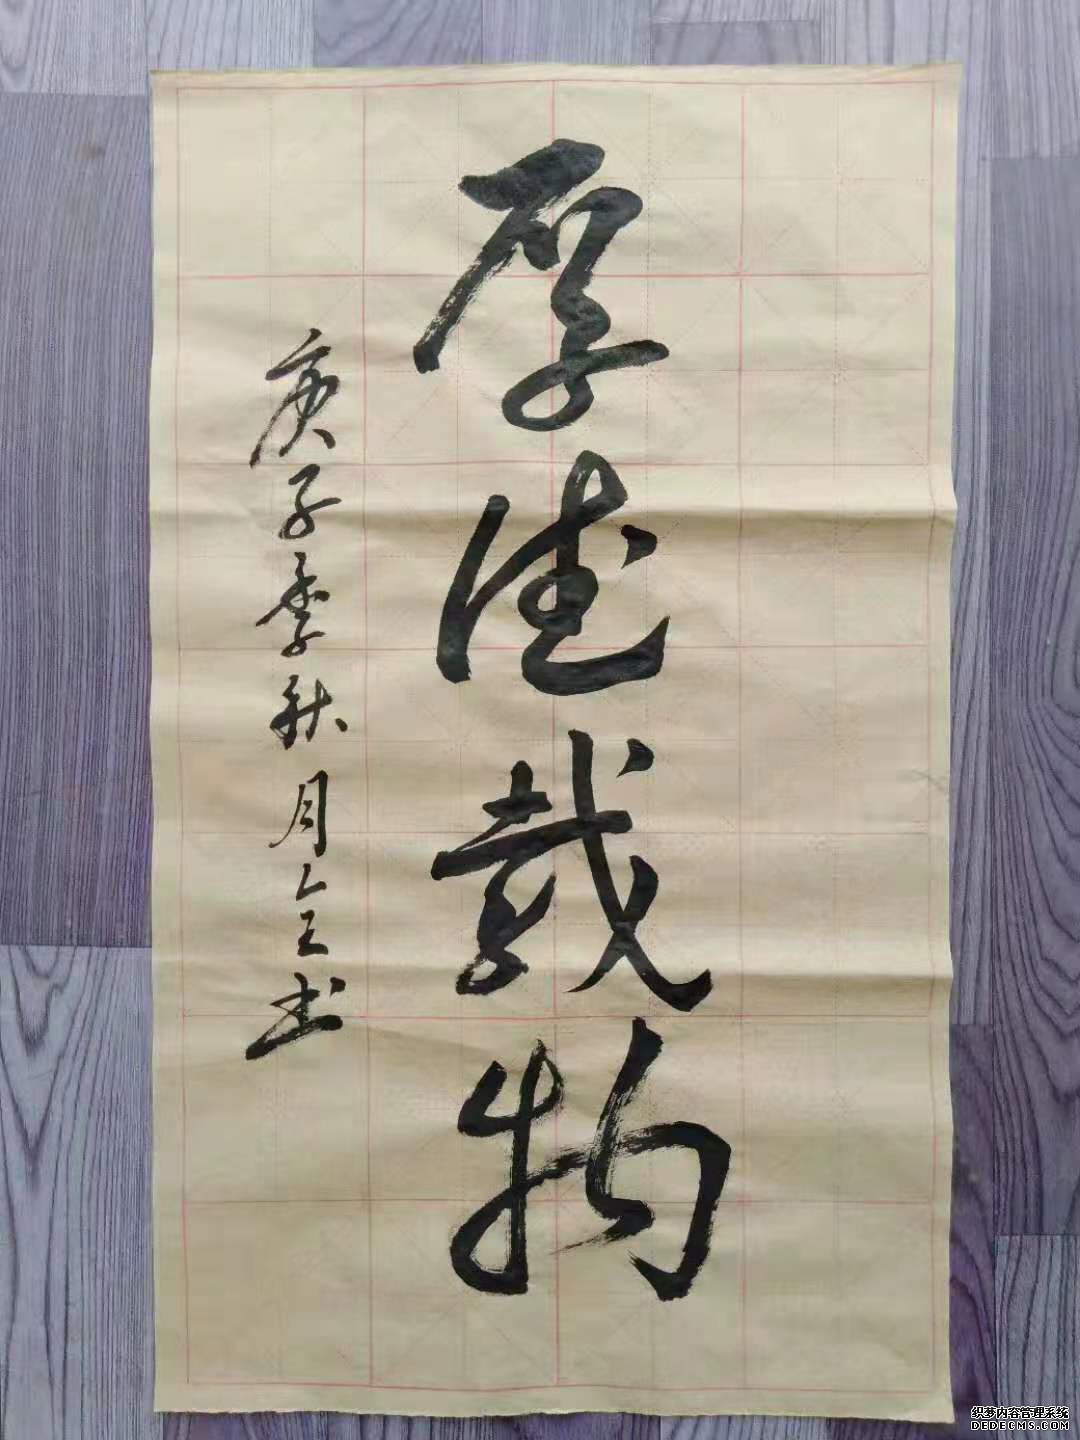 厚德载物
庚子季秋月书
织梦内容管理系统
DEDECMS.COM